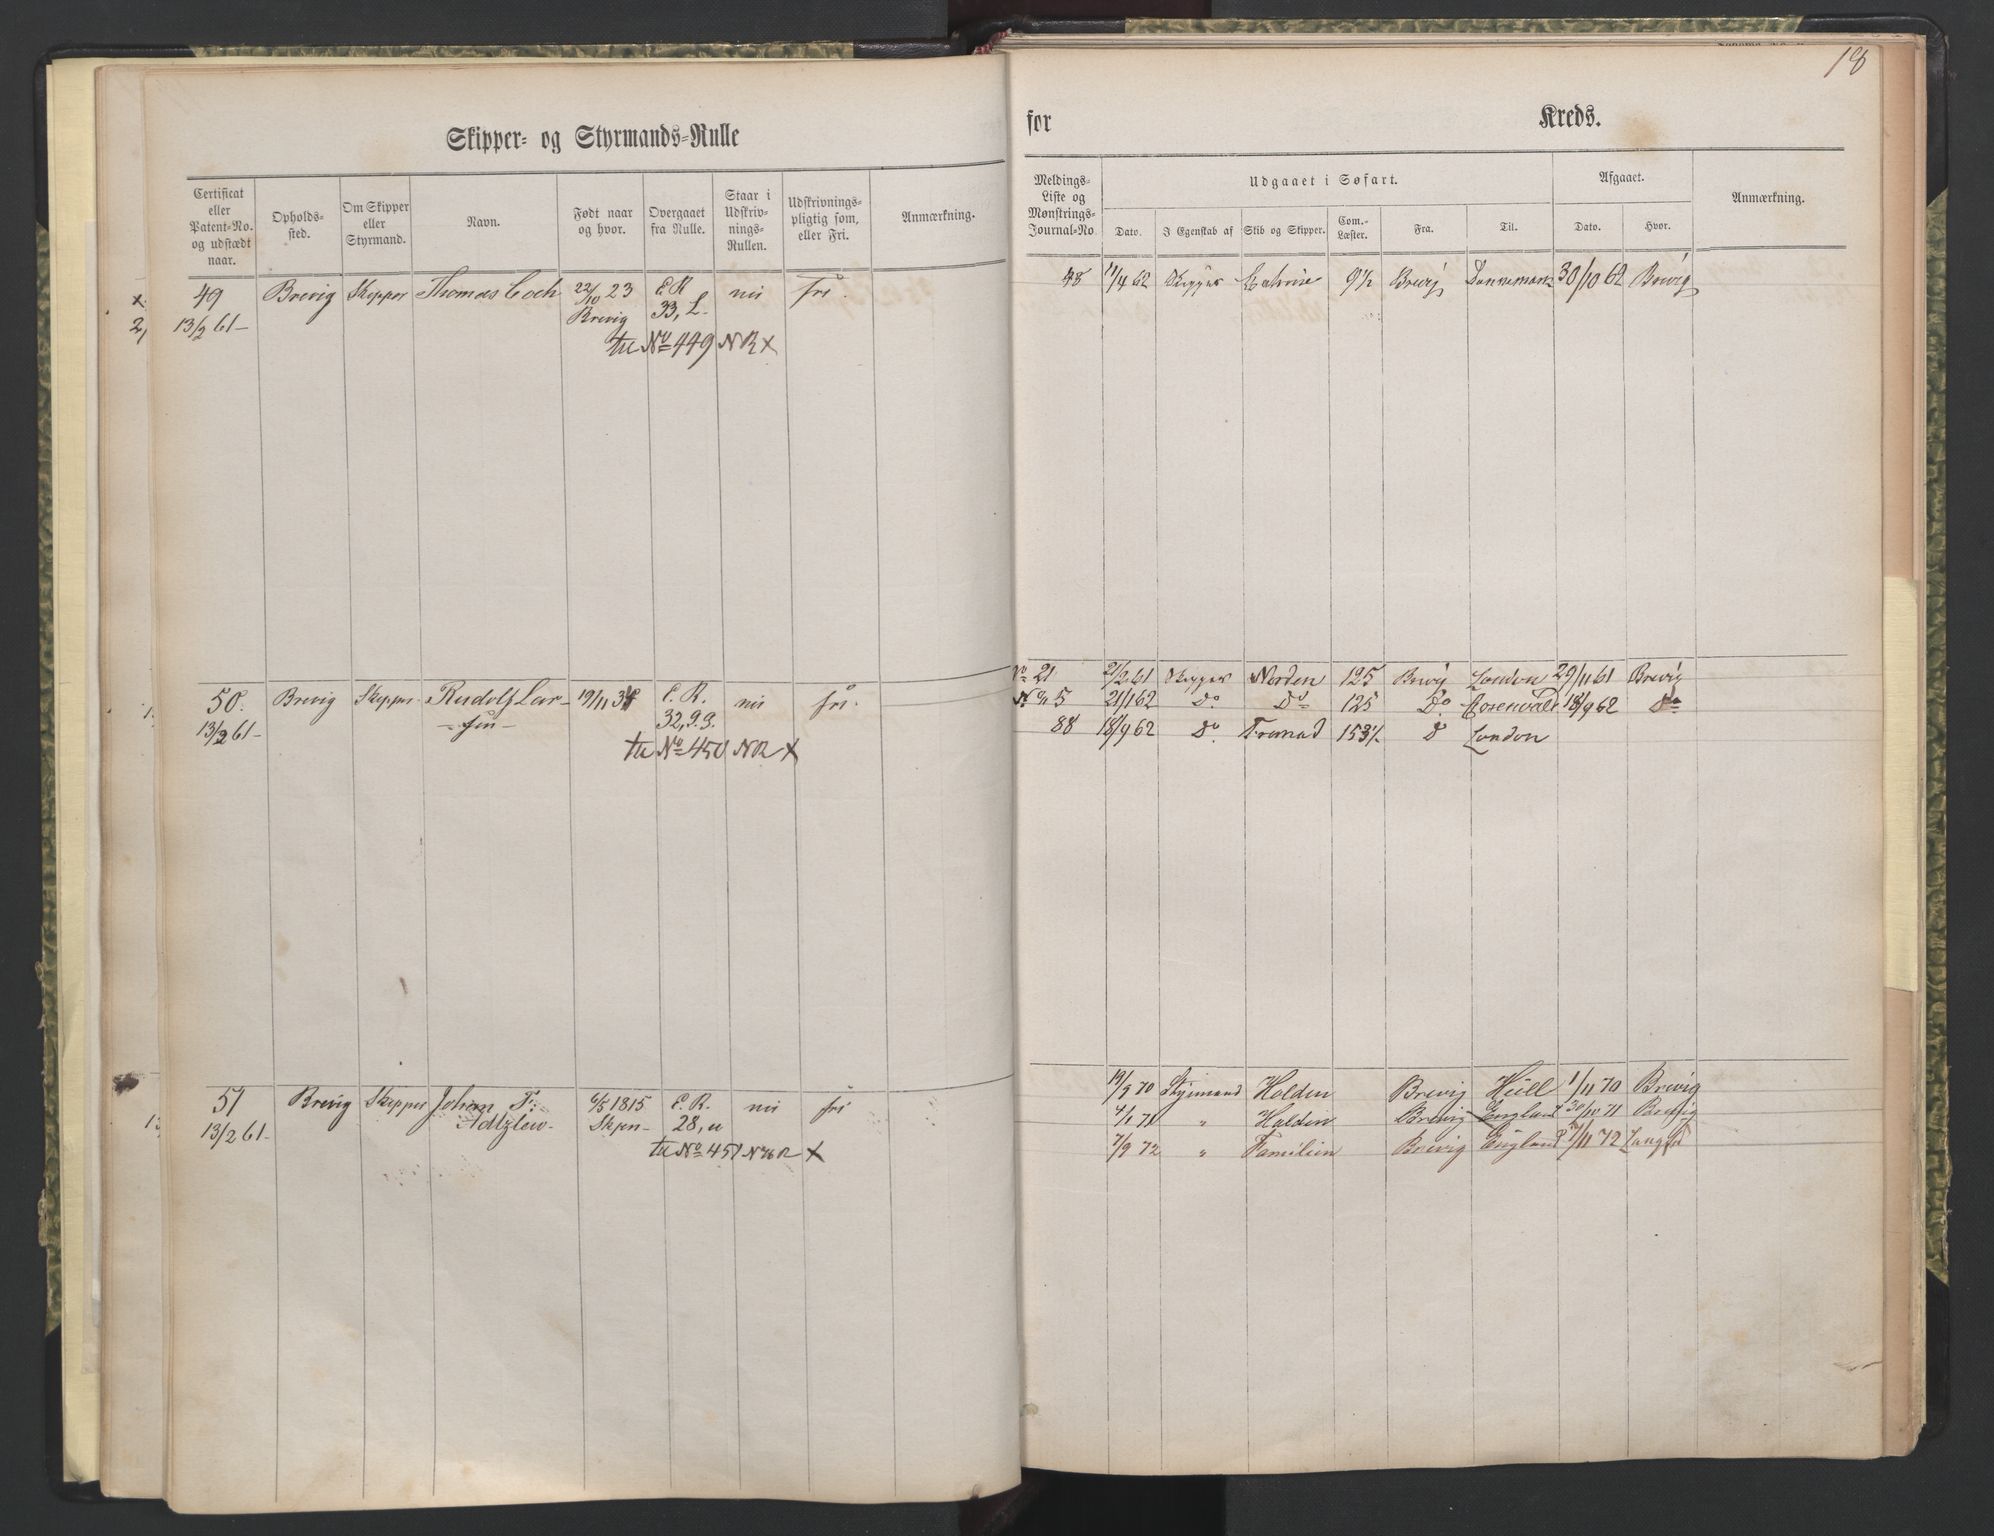 18
Skipper- og Styrmands-Rulle
for Kreds.
Certificat eller Patent-No. og udstædt naar.
Opholdssted.
Om Skipper eller Styrmand.
Navn.
Født naar og hvor.
Overgaaet fra Rulle.
Staar i Udskrivnings-Rullen.
Udskrivningspligtig som, eller Fri.
Anmærkning.
Meldings-Liste og Mønstrings-Journal-No.
Udgaaet i Søfart.
Dato.
I Egenskab af
Skib og Skipper.
Com.-Læster.
Fra:
Til.
Afgaaet.
Dato.
Hvor.
Anmærkning.
49 Brevig Skipper Thomas Coch 22/10 23 E.R. nei fri.
13/2 61- Brevig 33, L-
til No 449 NR x
48 11/4 62 Skipper Cathrine 9½ Brevig 30/10 62 Brevig
50. Brevig Skipper Rudolf Lar- 19/11 34 E.R. nei fri.
13/2 61- -sen- 32,93.
til No 450 NR x
No 21 21/2 61 Skipper Norden 125 Brevig London 29/11 61 Brevig
No 5 21/1 62 Do Do 125 Do 18/9 62 Do
88 18/9 62 Do Fremad 153½ Do London
51 Brevig Skipper Johan F: 6/5 1815 E.R. nei fri
13/2 61- Skpn- 28, u
til No 451 NR x
19/9 70 Styrmand Holden Brevig Hull 1/11 70 Brevig
4/1 71 " Holden Brevig England 30/10 71 Brevig
7/9 72 " Familien Brevig England /11 72